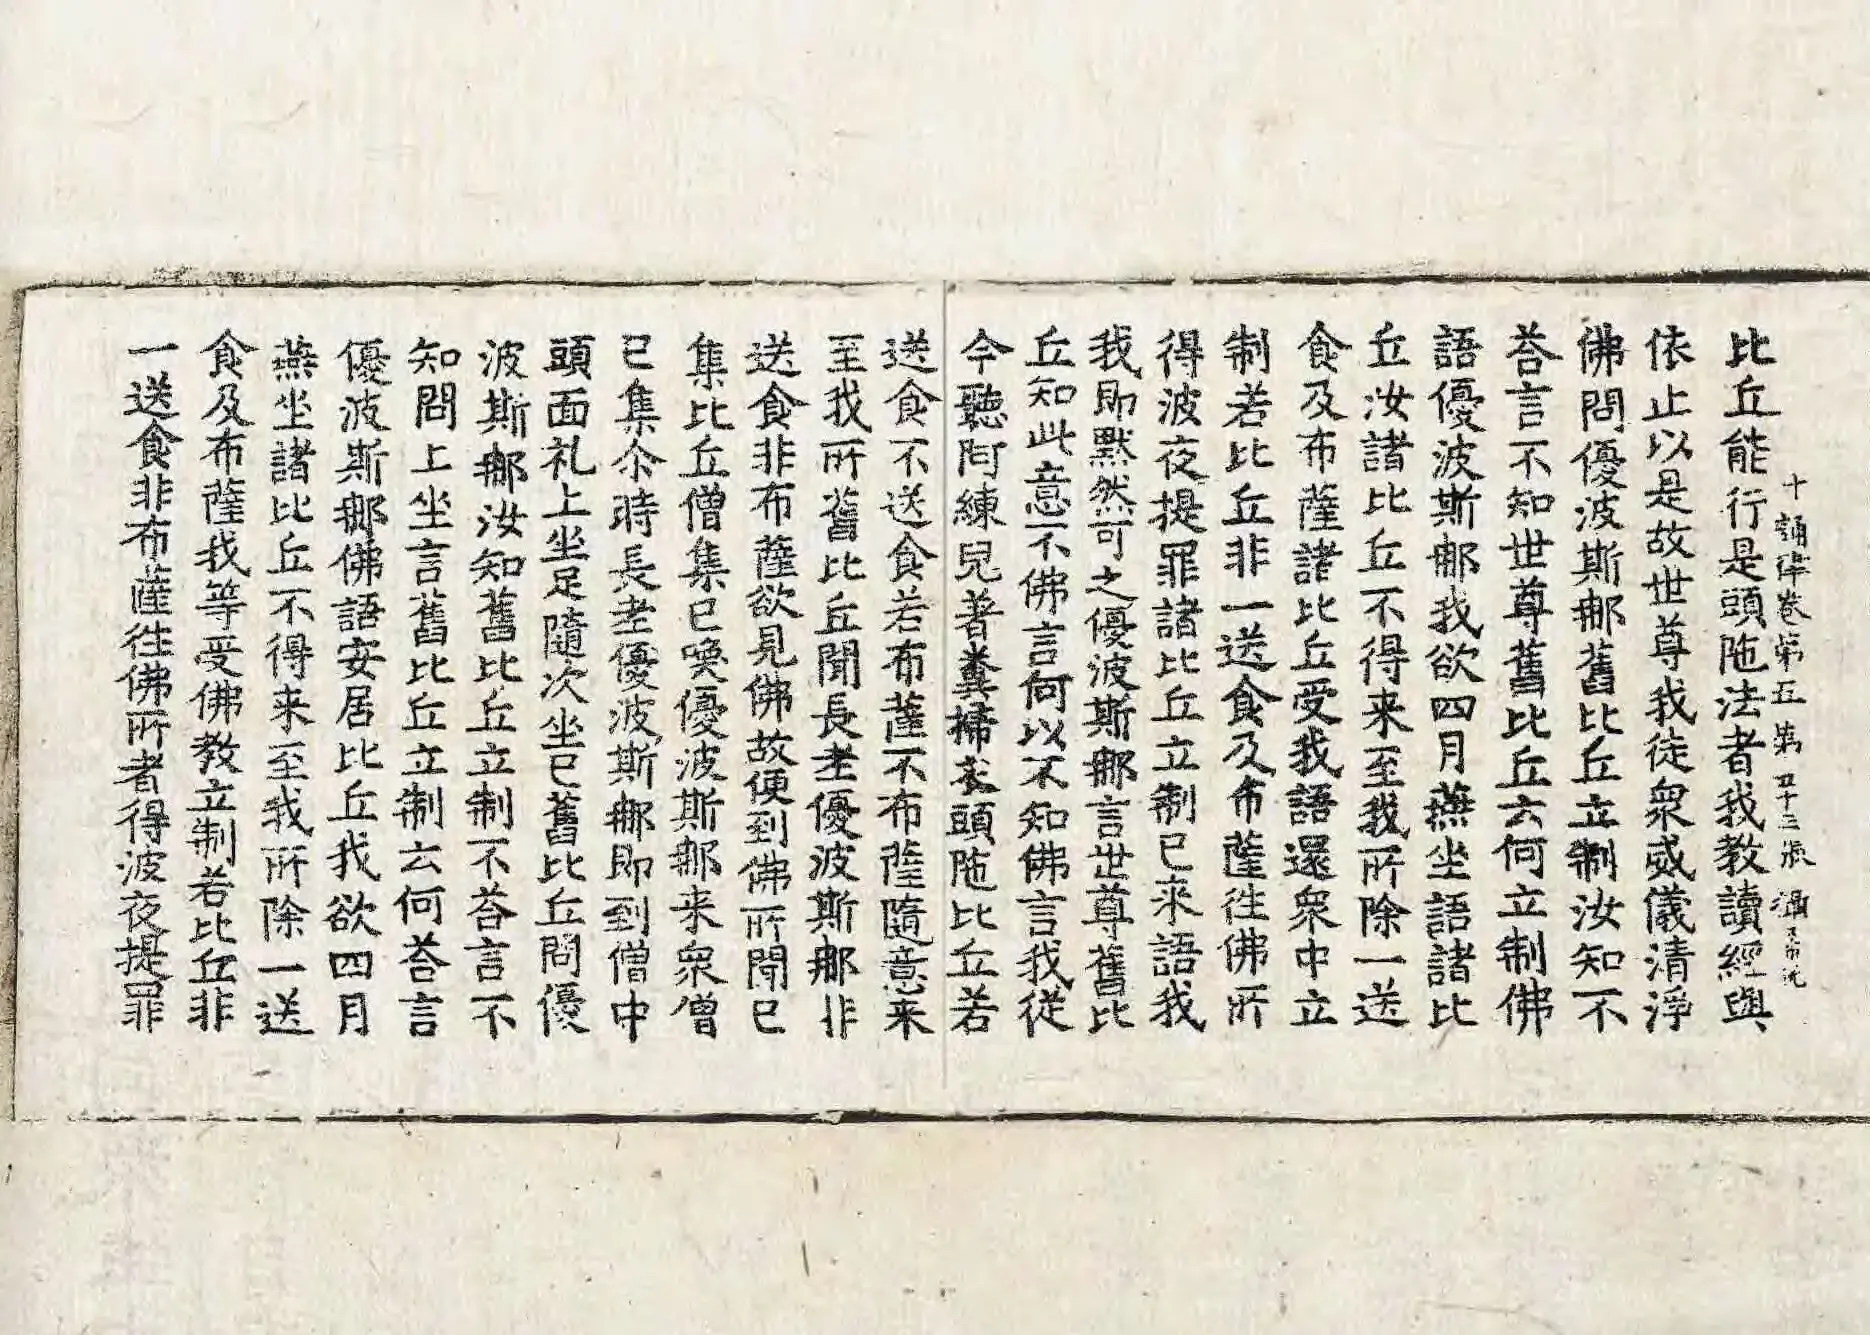 十誦律卷第五 第五十三張 攝
比丘能行是頭陁法者我教讀經與
依止以是故世尊我徒衆威儀清淨
佛問優波斯𨚗舊比丘立制汝知不
荅言不知世尊舊比丘云何立制佛
語優波斯𨚗我欲四月燕坐語諸比
丘汝諸比丘不得来至我所除一送
食及布薩諸比丘受我語還衆中立
制若比丘非一送食及布薩徃佛所
得波夜提罪諸比丘立制已来語我
我即默然可之優波斯𨚗言世尊舊比
丘知此意不佛言何以不知佛言我從
今聽阿練兒著糞掃衣頭陁比丘若
送食不送食若布薩不布薩隨意来
至我所舊比丘聞長老優波斯𨚗非
送食非布薩欲見佛故便到佛所聞已
集比丘僧集已喚優波斯𨚗来衆僧
已集尒時長老優波斯𨚗即到僧中
頭面礼上坐足隨次坐已舊比丘問優
波斯𨚗汝知舊比丘立制不荅言不
知問上坐言舊比丘立制云何荅言
優波斯𨚗佛語安居比丘我欲四月
燕坐諸比丘不得来至我所除一送
食及布薩我等受佛教立制若比丘非
一送食非布薩徃佛所者得波夜提罪